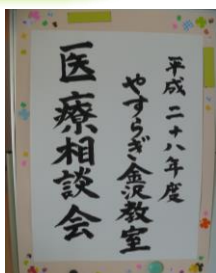 平成二十八年度
やすらぎ金沢教室
医療相談会